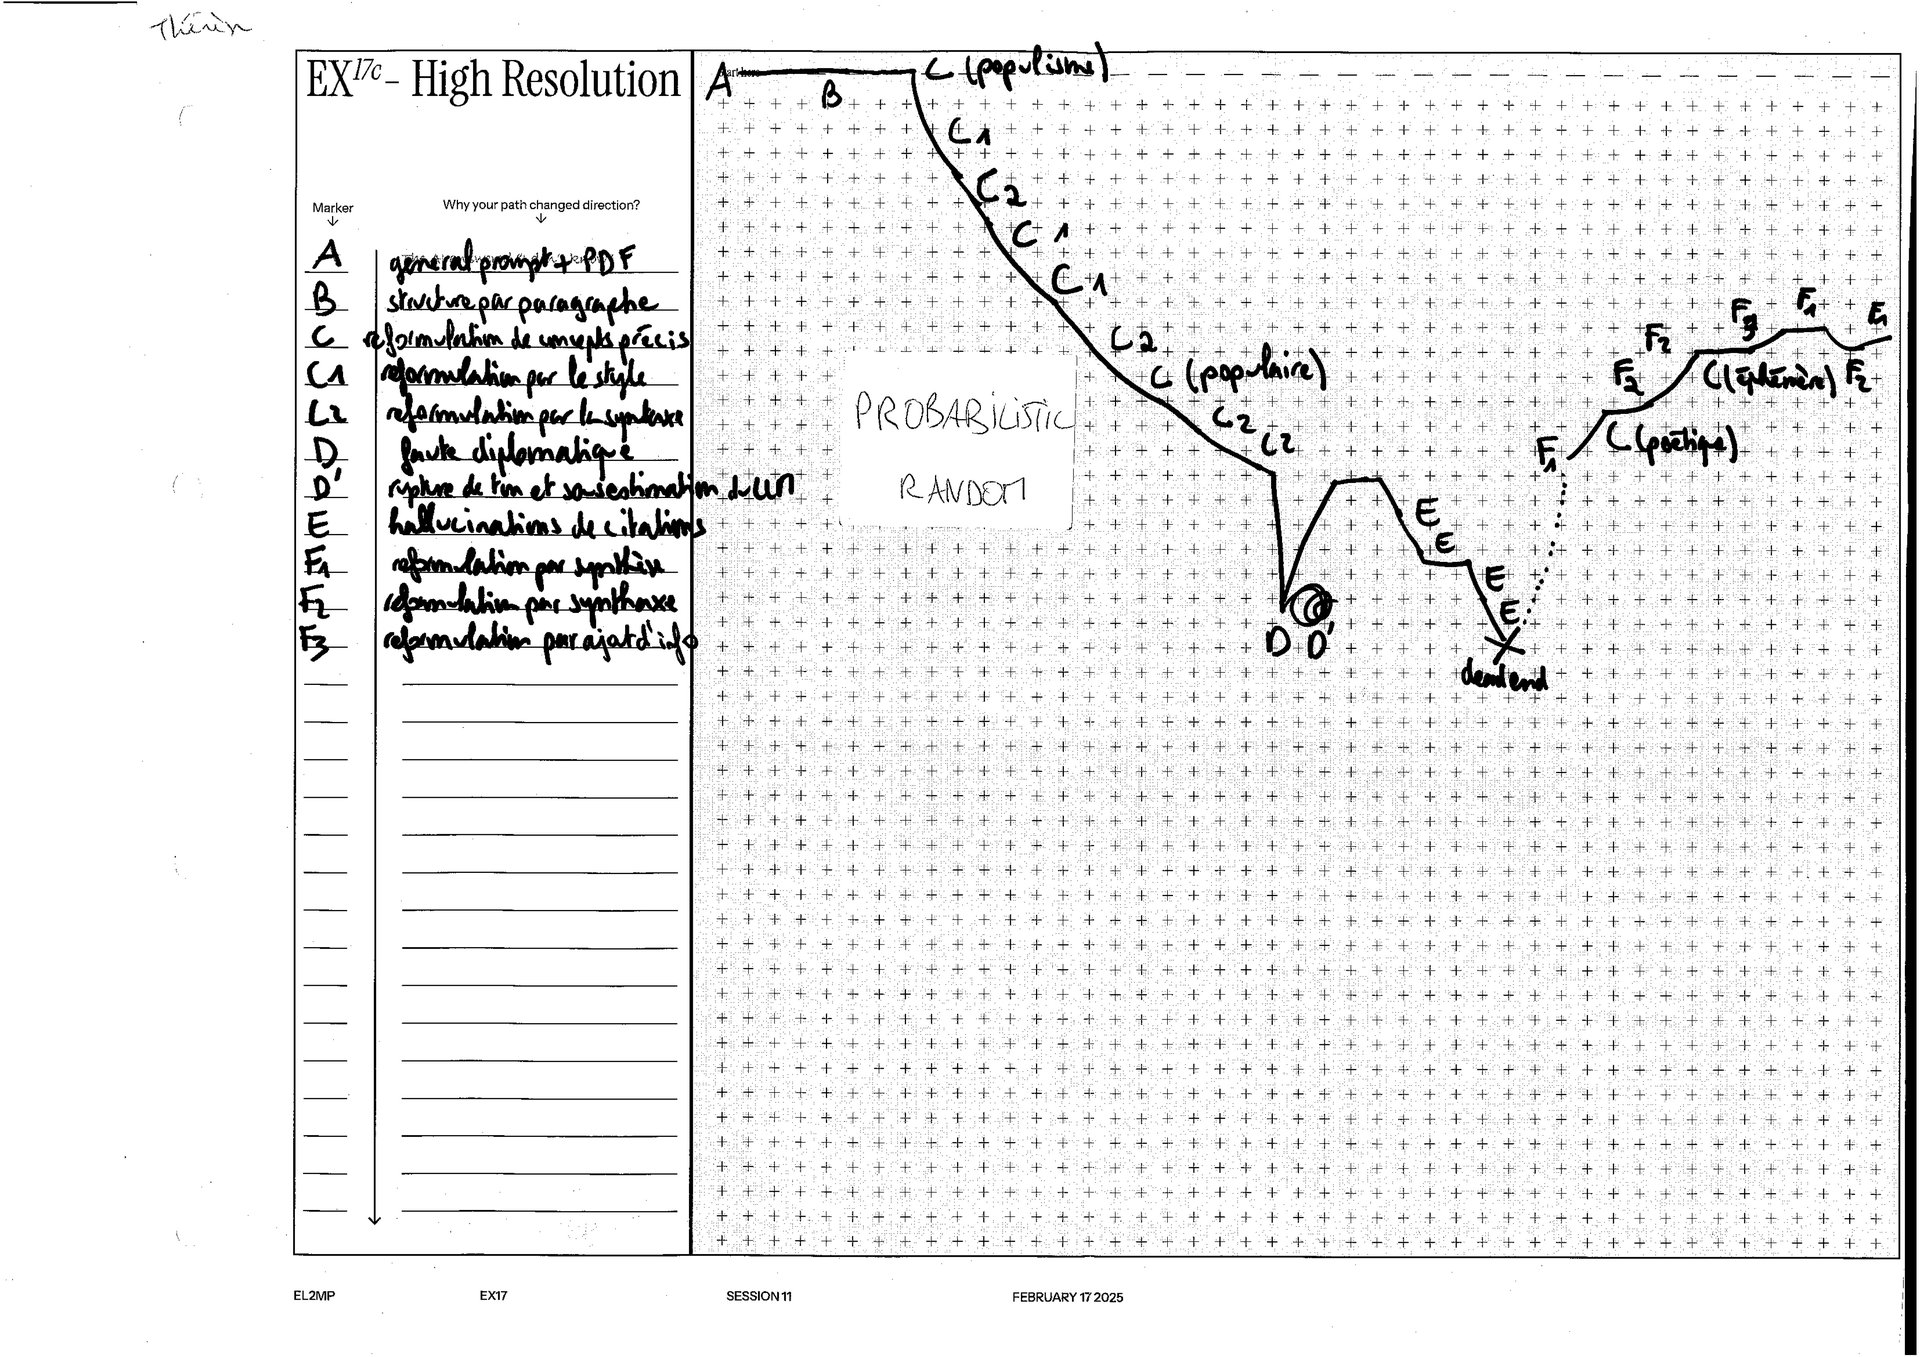 Thérèse
EX17c – High Resolution
Marker
Why your path changed direction?
A general prompt + PDF
B structure par paragraphe
C reformulation de concepts précis
C1 reformulation par le style
C2 reformulation par la syntaxe
D faute diplomatique
D' rupture de ton et sousestimation du LLM
E hallucinations de citations
F1 reformulation par synthèse
F2 reformulation par synthaxe
F3 reformulation par ajout d'info
A
B
C (populisme)
C1
C2
C1
C1
C2
C (populaire)
C2
C2
D D'
E
E
E
E
dead end
F1
C (poétique)
F2
F2
C (éphémère)
F3
F1
F2
E1
PROBABILISTIC
RANDOM
EL2MP
EX17
SESSION 11
FEBRUARY 17 2025